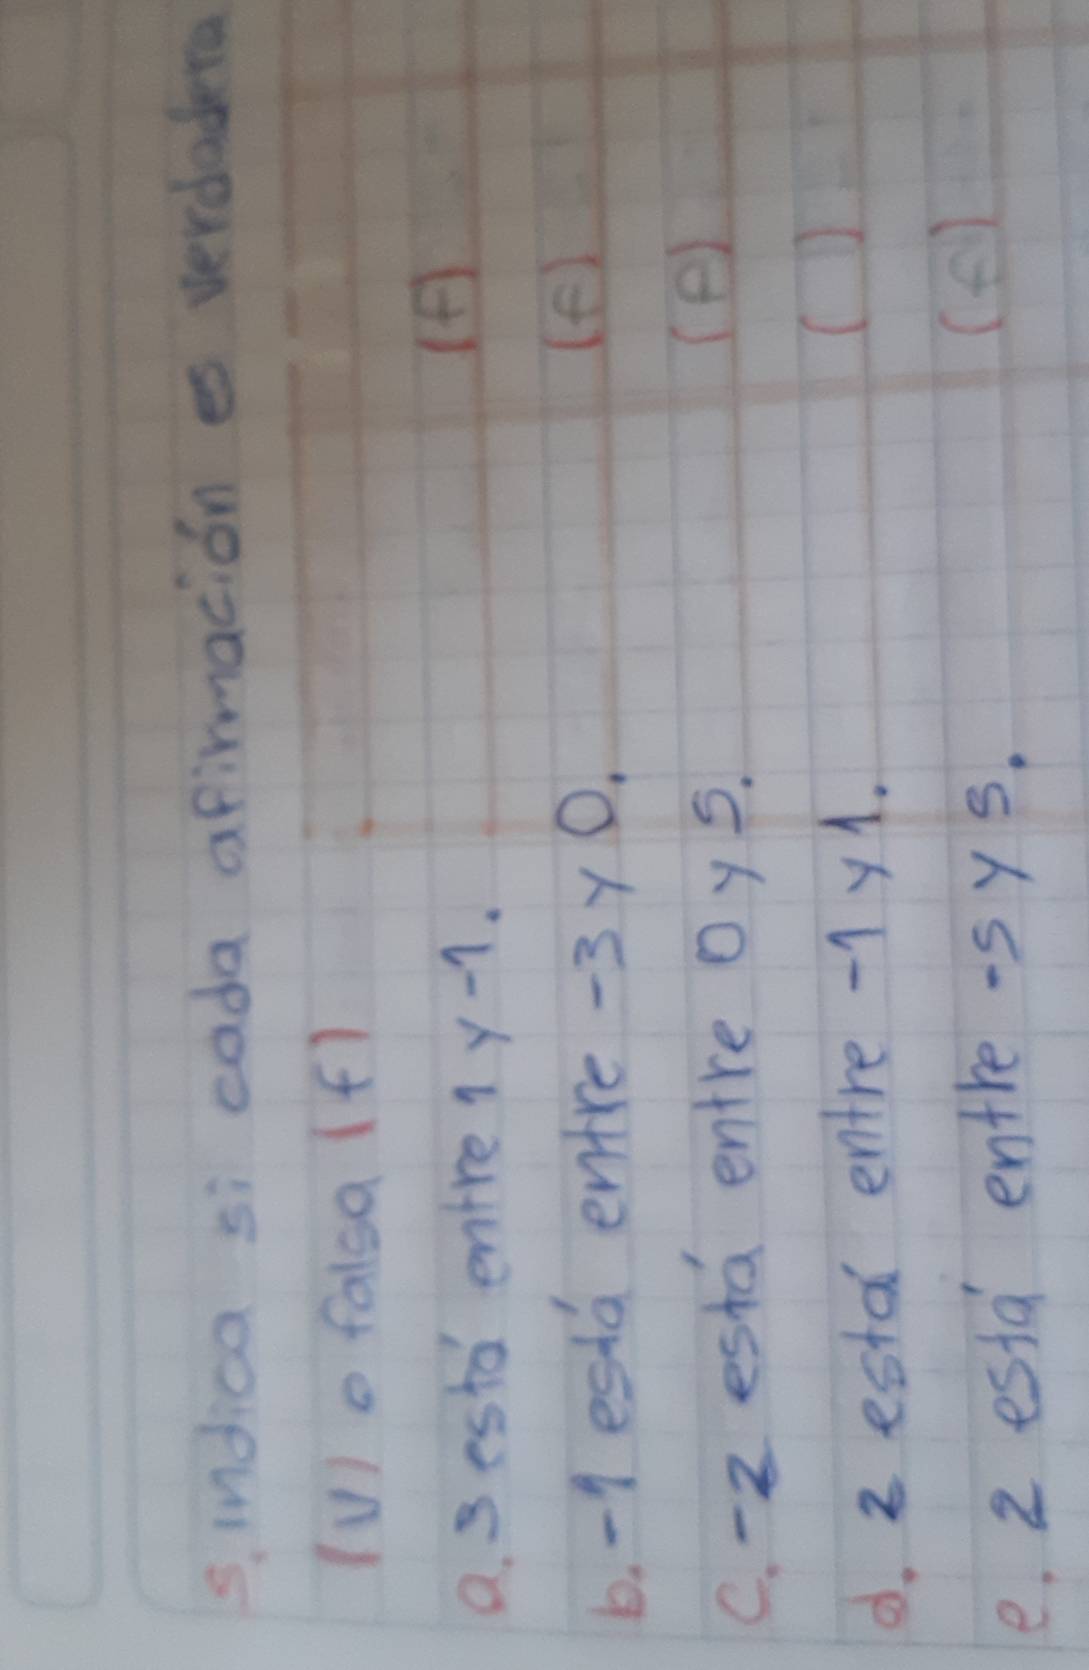 5. indica si cada afirmación es verdadera
(V) o falsa (f)
a. 3 está entre 1 y -1. (f)
b. -1 está entre -3 y 0. (f)
c. -2 está entre 0 y 5. (f)
d. 2 está entre -1 y 1. ( )
e. 2 está entre -5 y 5. (f)